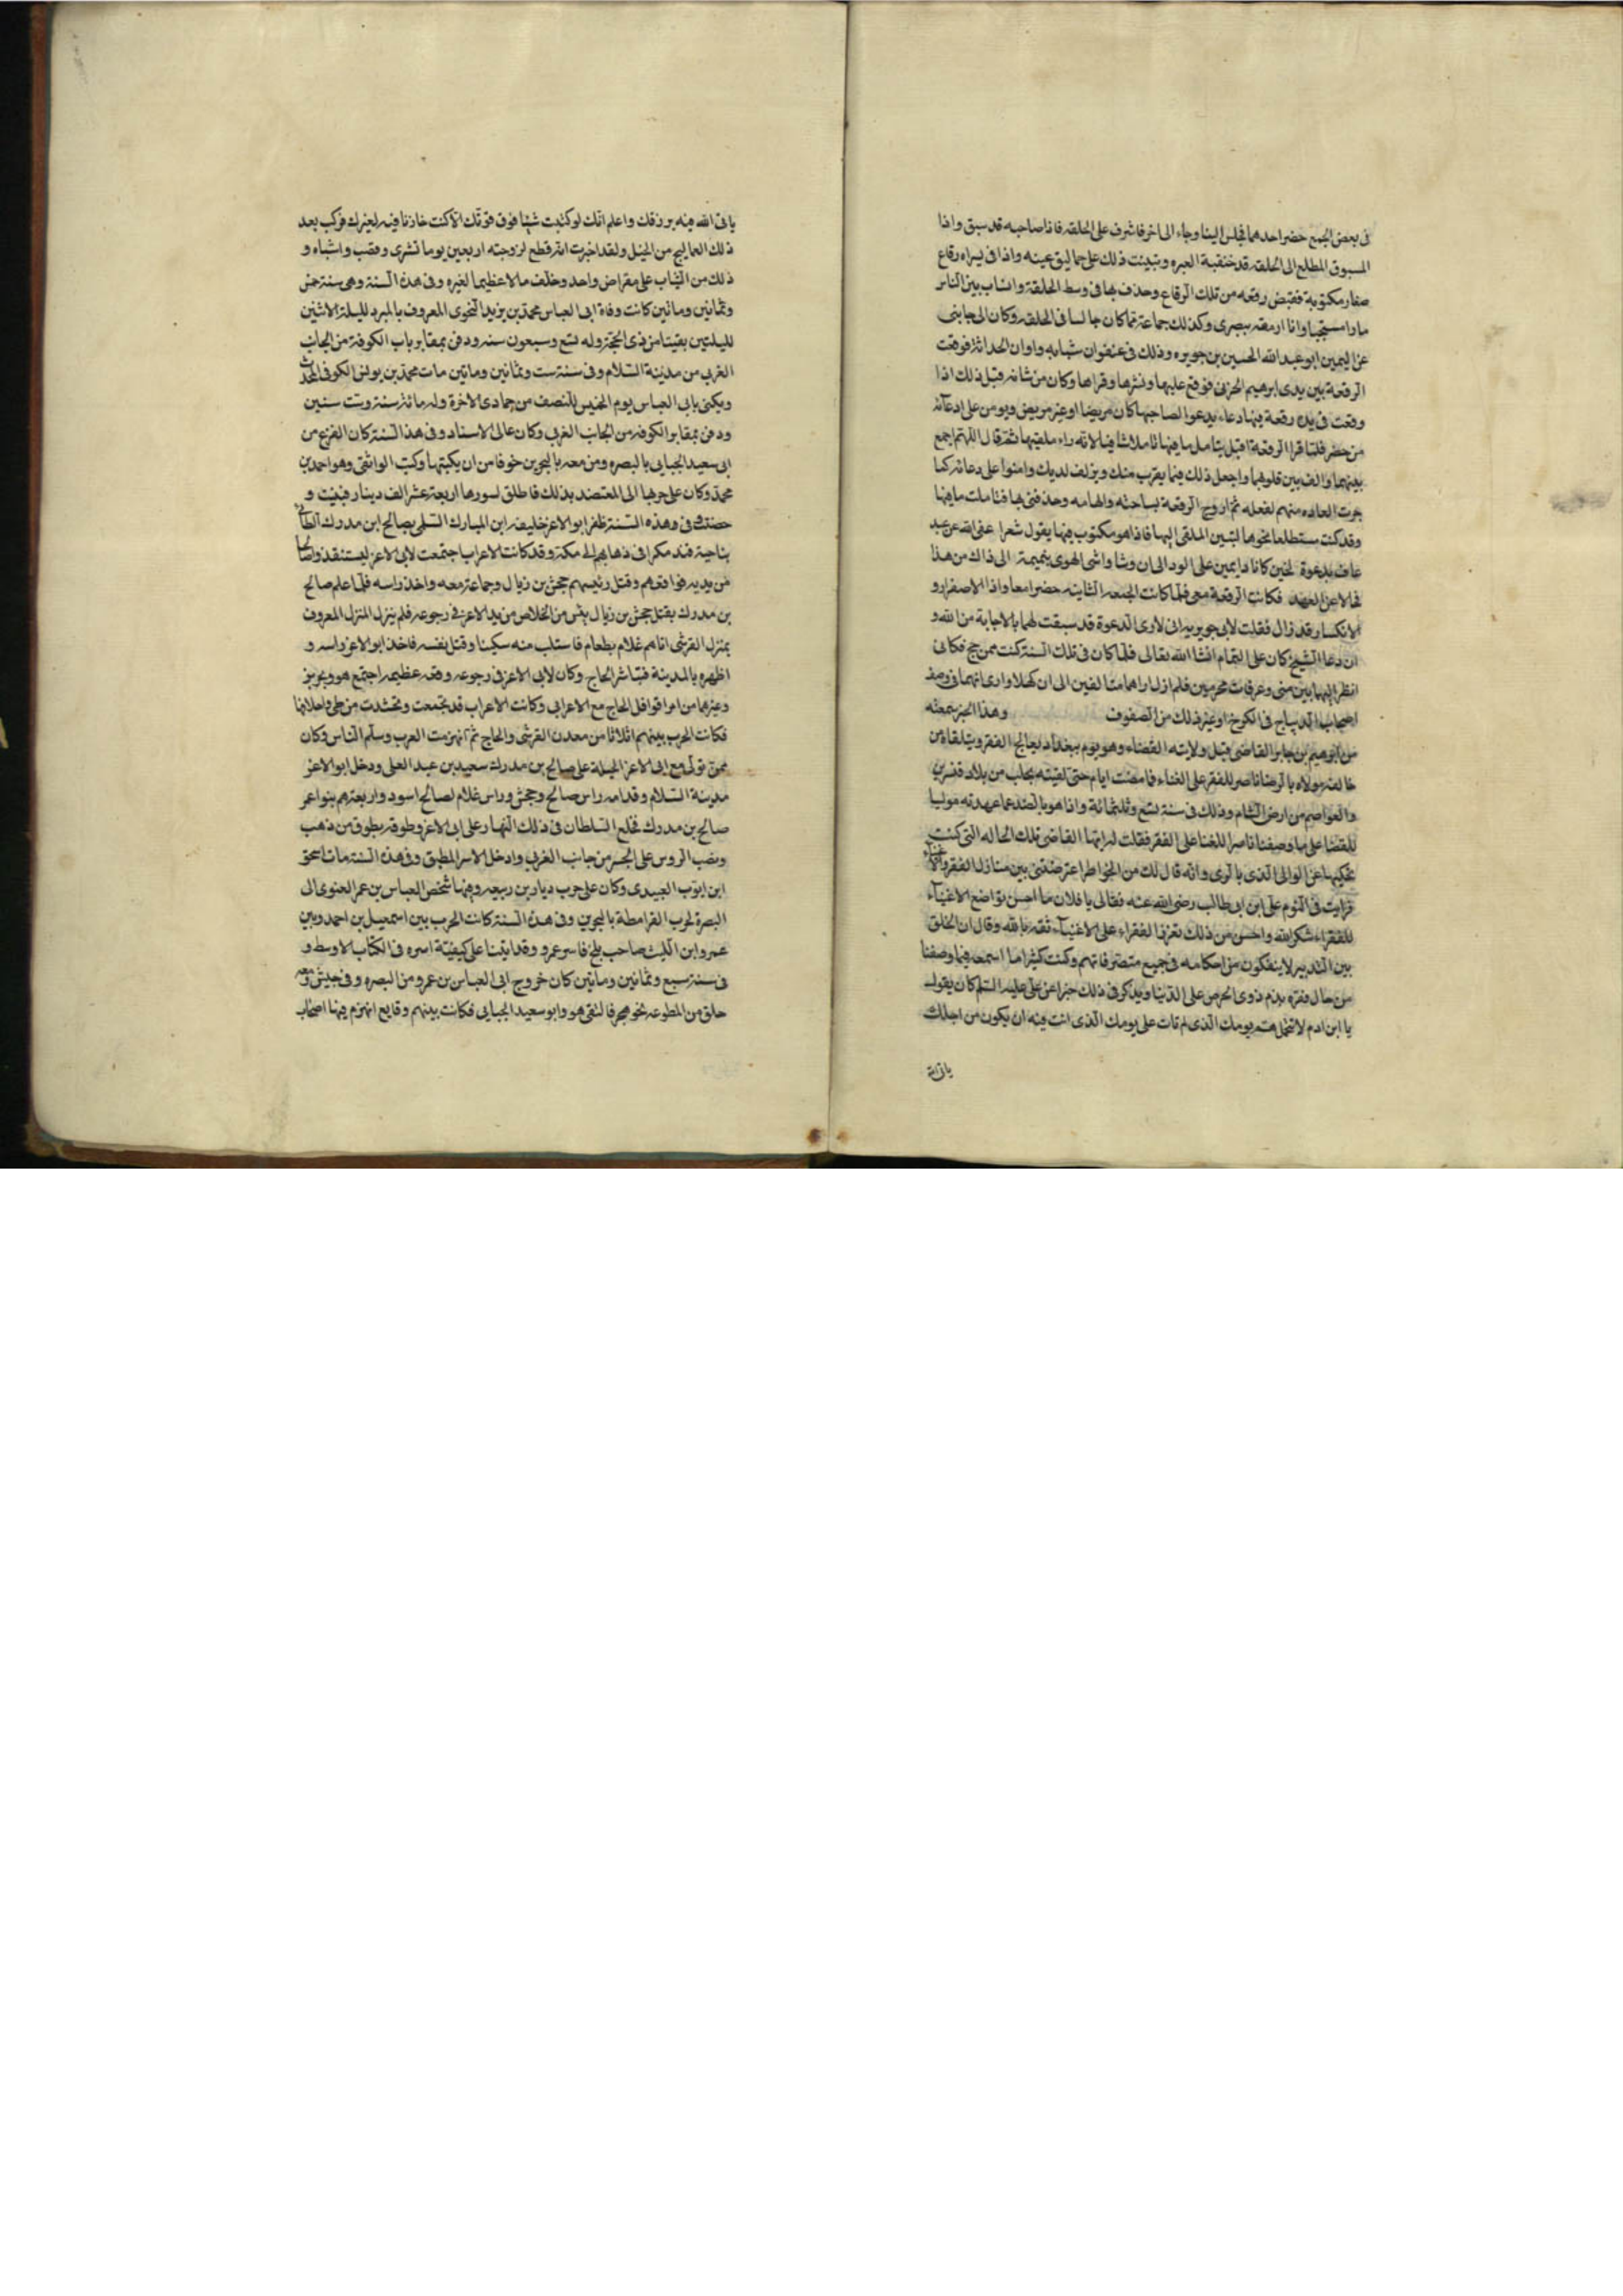 فى بعض الجمع حضر احدهما فجلس الينا وجاء الى اخر فاشرف على الحلقه فاذا صاحبه قد سبق واذا
المسبوق المطلع الى الحلقه قد خنقبة العبره وتبينت ذلك على حماليق عينه واذا فى يسراه رقاع
صغار مكتوبة فقبض رقعه من تلك الرقاع وحذف بها فى وسط الحلقة وانساب بين الناس
مارا مستحيا وانا ارمقه ببصرى وكذلك جماعة مما كان جالسا فى الحلقه وكان الى جانبى
عن اليمين ابو عبد الله الحسين بن جويره وذلك فى عنفوان شبابه واوان الحداثة فوقعت
الرقعة بين يدى ابرهيم الحربى فوقع عليها ونشرها وقراها وكان من شانه قبل ذلك اذا
وقعت فى يده رقعة فيها دعاء يدعوا لصاحبها كان مريضا او غير مريض ويومن على ادعائه
من حضر فلما قرا الرقعة اقبل يتامل ما فيها تاملا شافيا لانه راء ملقيها ثم قال اللهم اجمع
بينهما والف بين قلوبهما واجعل ذلك فيما يقرب منك ويزلف لديك وامنوا على دعائه كما
جرت العاده منهم لفعله ثم ادرج الرقعة بساحته والهامه وحذفنى بها فتاملت ما فيها
وقد كنت مستطلعا نحوها لتبين الملقى اليها فاذا هو مكتوب فيها يقول شعرا عفى الله عن عبد
عاف بدعوة لخين كانا دايمين على الود الى ان وشا واشى الهوى بنميمة الى ذاك من هذا
فحالا عن العهد فكانت الرقعة معى فلما كانت الجمعه الثانيه حضرا معا واذا الاصفرار و
الانكسار قد زال فقلت لابى جويره انى لارى الدعوة قد سبقت لهما بالاجابة من الله و
ان دعا الشيخ كان على التمام انشا الله تعالى فلما كان فى تلك السنة كنت ممن حج فكانى
انظر اليهما بين منى وعرفات محرمين فلم ازل اراهما متالفين الى ان كهلا وارى انهما فى صف
اصحاب الديباج فى الكرخ او غير ذلك من الصفوف وهذا الخبر سمعته
من ابرهيم بن جابر القاضى قبل ولايته القضاء وهو يوم ببغداد يعالج الفقر ويتلقاه من
خالقه مولاه بالرضا ناصر للفقر على الغناء فما مضت ايام حتى لقيته بحلب من بلاد قنسرين
والعواصم من ارض الشام وذلك فى سنة تسع وثلثمائة واذا هو بالضد عما عهدته موليا
للقضا على ما وصفنا ناصرا للغنا على الفقر فقلت له ايها القاضى تلك الحاله التى كنت
تحكيها عن الوالى الذى بالرى وانه قال لك من الخواطر اعترضتنى بين منازل الفقر والاغنياء
فرايت فى النوم على ابن ابى طالب رضى الله عنه فقال لى يا فلان ما احسن تواضع الاغنياء
للفقراء شكرا لله واحسن من ذلك تعزز الفقراء على الاغنياء ثقة بالله وقال ان الخلق
بين التدبير لا ينفكون من احكامه فى جميع متصرفاتهم وكنت كثيرا ما اسمعه فيما وصفنا
من حال فقره يذم ذوى الحرص على الدنيا ويذكر فى ذلك خبرا عن على عليه السلم كان يقول
يا ابن ادم لا تحمل هم يومك الذى لم تات على يومك الذى انت فيه ان يكون من اجلك
ياتى الله
ياتى الله فيه برزقك واعلم انك لو كتبت شيئا فوق قوتك الا كنت خازنا فيه لغيرك فركب بعد
ذلك العماليج من الخيل ولقد اخبرت انه قطع لزوجته اربعين يوما تشرى وقصب واشباه و
ذلك من الثياب على مقراض واحد وخلف مالا عظيما لغيره وفى هذه السنة وهى سنة خمس
وثمانين وماتين كانت وفاة ابى العباس محمد بن يزيد النحوى المعروف بالمبرد لليلة الاثنين
لليلتين بقيتا من ذى الحجة وله تسع وسبعون سنه ودفن بمقابر باب الكوفة من الجانب
الغربى من مدينة السلام وفى سنة ست وثمانين وماتين مات محمد بن يونس الكوفى المحدث
ويكنى بابى العباس يوم الخميس للنصف من جمادى الاخرة وله مائة سنة وست سنين
ودفن بمقابر الكوفة من الجانب الغربى وكان عالى الاسناد وفى هذا السنة كان الفزع من
ابى سعيد الجبايى بالبصره ومن معه بالبحرين خوفا من ان يكبتها وكتب الواثقى وهو احمد بن
محمد وكان على حربها الى المعتضد بذلك فاطلق لسورها اربعة عشر الف دينار فبنيت و
حصنت وفى وهذه السنة ظفر ابو الاعز خليفه ابن المبارك السلمى بصالح ابن مدرك الطائى
بناحية فيد مكرا فى ذهابهم الى مكة وقد كانت الاعراب اجتمعت لابى الاعز ليستنقذ واصالحا
من يديه فواقعهم وقتل رئيسهم جحش بن زيال وجماعة معه واخذ راسه فلما علم صالح
بن مدرك بقتل جحش بن زيال يئس من الخلاص من يد الاعز فى رجوعه فلم ينزل المنزل المعروف
بمنزل القرشى اتاهم غلام بطعام فاستلب منه سكينا وقتل نفسه فاخذ ابو الاعز راسه و
اظهره بالمدينة فتباشر الحاج وكان لابى الاعز فى رجوعه وقعه عظيمه اجتمع هو ونحرير
وغيرهما من امرا قوافل الحاج مع الاعرابى وكانت الاعراب قد تجمعت وتحشدت من طى واحلافها
فكانت الحرب بينهم اثلاثا من معدن القرشى والحاج ثم انهزمت العرب وسلم الناس وكان
ممن تولى مع ابى الاعز الحيلة على صالح بن مدرك سعيد بن عبد العلى ودخل ابو الاعز
مدينة السلام وقدامه راس صالح وجحش وراس غلام لصالح اسود واربعتهم بنو اعمر
صالح بن مدرك فخلع السلطان فى ذلك النهار على ابى الاعز وطوقه بطوق من ذهب
ونصب الروس على الجسر من جانب الغربى وادخل الاسر المطبق وفى هذه السنة مات اسحق
ابن ايوب العبيدى وكان على حرب ديار بن ربيعه وفيها شخص العباس بن عمر الغنوى الى
البصرة لحرب القرامطة بالبحرين وفى هذه السنة كانت الحرب بين اسمعيل بن احمد وبين
عمرو ابن الليث صاحب بلخ فاسر عمرو وقد اتينا على كيفيتة اسره فى الكتاب الاوسط و
فى سنة سبع وثمانين وماتين كان خروج ابى العباس بن عمرو من البصره وفى جيش ومعه
خلق من المطوعه نحو هجر فالتقى هو وابو سعيد الجبايى فكانت بينهم وقايع انهزم فيها اصحاب